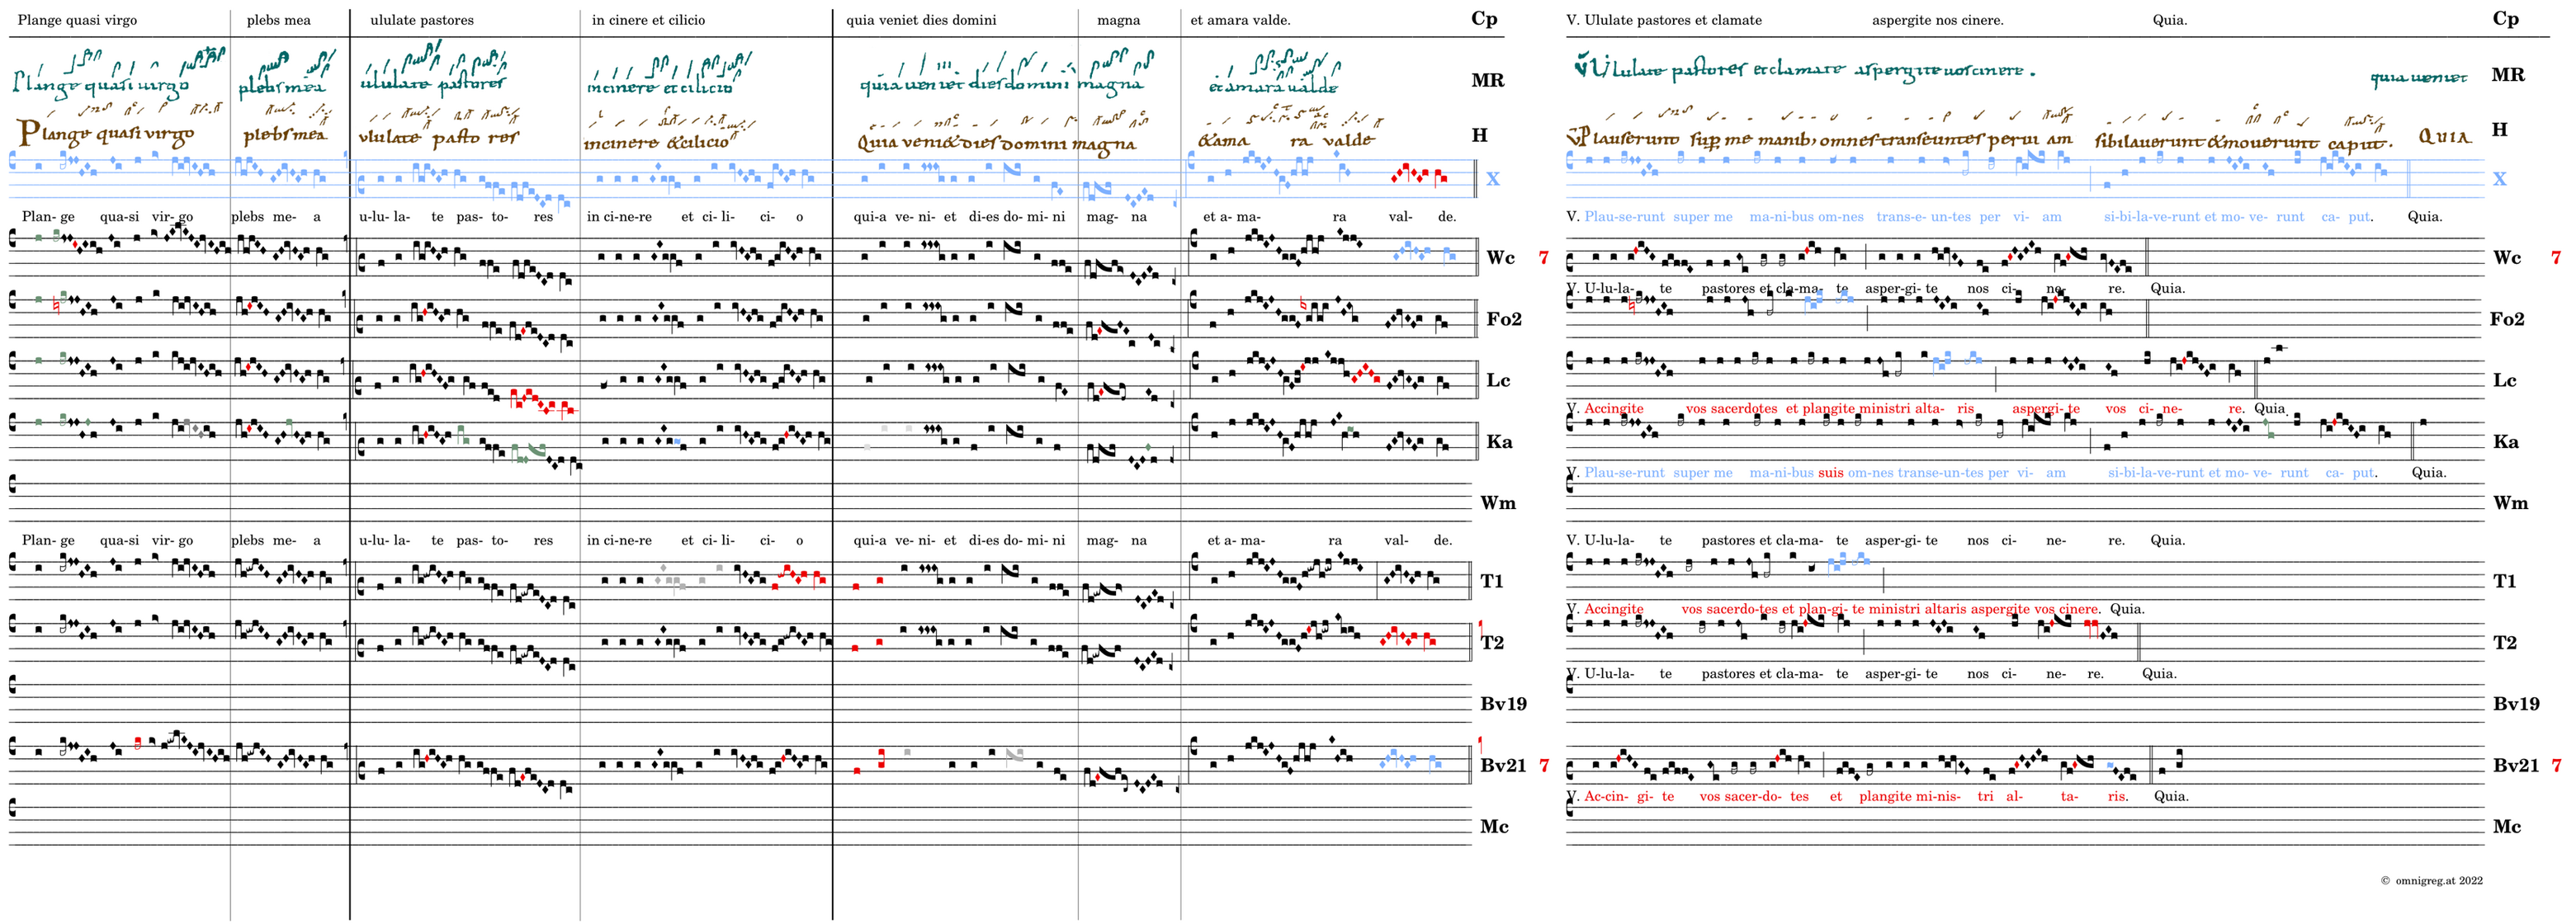 Plange quasi virgo plebs mea ululate pastores in cinere et cilicio quia veniet dies domini magna et amara valde. Cp
Plange quasi uirgo plebs mea ululate pastores incinere et cilicio quia ueniet dies domini magna et amara ualde MR
Plange quasi virgo plebs mea vlulate pasto res incinere &cilicio Quia veni& dies domini magna &ama ra valde H
X
Plan- ge qua-si vir- go plebs me- a u-lu- la- te pas- to- res in ci-ne-re et ci- li- ci- o qui-a ve- ni- et di-es do- mi- ni mag- na et a- ma- ra val- de.
Wc 7
Fo2
Lc
Ka
Wm
Plan- ge qua-si vir- go plebs me- a u-lu- la- te pas- to- res in ci-ne-re et ci- li- ci- o qui-a ve- ni- et di-es do- mi- ni mag- na et a- ma- ra val- de.
T1
T2
Bv19
Bv21 7
Mc
V. Ululate pastores et clamate aspergite nos cinere. Quia. Cp
Ululate pastores et clamate aspergite nos cinere. quia ueniet MR
Plauserunt sup me manib; omnes transeuntes per ui am sibilauerunt &mouerunt caput. QUIA H
X
V. Plau-se-runt super me ma-ni-bus om-nes trans-e- un-tes per vi- am si-bi-la-ve-runt et mo- ve- runt ca- put. Quia.
Wc 7
V. U-lu-la- te pastores et cla-ma- te asper-gi- te nos ci- ne- re. Quia.
Fo2
Lc
V. Accingite vos sacerdotes et plangite ministri alta- ris aspergi- te vos ci- ne- re. Quia.
Ka
V. Plau-se-runt super me ma-ni-bus suis om-nes transe-un-tes per vi- am si-bi-la-ve-runt et mo- ve- runt ca- put. Quia.
Wm
V. U-lu-la- te pastores et cla-ma- te asper-gi- te nos ci- ne- re. Quia.
T1
V. Accingite vos sacerdo-tes et plan-gi- te ministri altaris aspergite vos cinere. Quia.
T2
V. U-lu-la- te pastores et cla-ma- te asper-gi- te nos ci- ne- re. Quia.
Bv19
Bv21 7
V. Ac-cin- gi- te vos sacer-do- tes et plangite mi-nis- tri al- ta- ris. Quia.
Mc
© omnigreg.at 2022